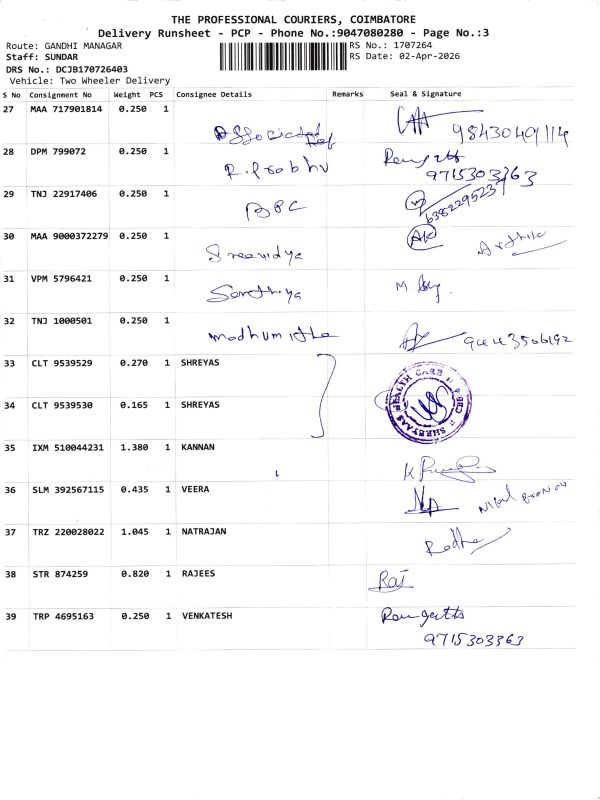 THE PROFESSIONAL COURIERS, COIMBATORE
Delivery Runsheet - PCP - Phone No.:9047080280 - Page No.:3
Route: GANDHI MANAGAR
RS No.: 1707264
Staff: SUNDAR
RS Date: 02-Apr-2026
DRS No.: DCJB170726403
Vehicle: Two Wheeler Delivery
S No Consignment No Weight PCS Consignee Details Remarks Seal & Signature
27 MAA 717901814 0.250 1
28 DPM 799072 0.250 1 R. Prabhu 9715303363
29 TNJ 22917406 0.250 1 BPC
30 MAA 9000372279 0.250 1 Sreevidya Arthik
31 VPM 5796421 0.250 1 Senthiya
32 TNJ 1000501 0.250 1 Madhumitha 9443506192
33 CLT 9539529 0.270 1 SHREYAS
34 CLT 9539530 0.165 1 SHREYAS
35 IXM 510044231 1.380 1 KANNAN
36 SLM 392567115 0.435 1 VEERA
37 TRZ 220028022 1.045 1 NATRAJAN Radha
38 STR 874259 0.820 1 RAJEES Raj
39 TRP 4695163 0.250 1 VENKATESH
9715303363